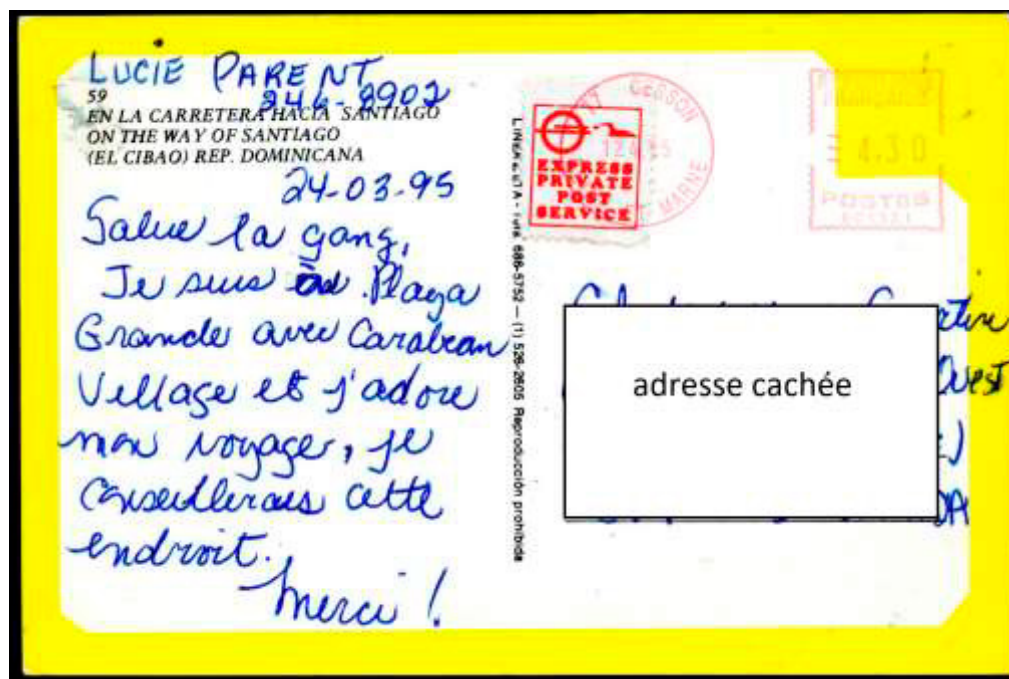 LUCIE PARENT
246-2902
59
EN LA CARRETERA HACIA SANTIAGO
ON THE WAY OF SANTIAGO
(EL CIBAO) REP. DOMINICANA
24-03-95
Salue la gang,
Je suis Playa
Grande avec Carabean
Village et j'adore
mon voyage, je
conseillerais cette
endroit.
Merci !
686-5752 — (1) 526-2605 Reproducción prohibida
EXPRESS
PRIVATE
POST
SERVICE
CESSON
MARNE
4.30
POSTES
adresse cachée